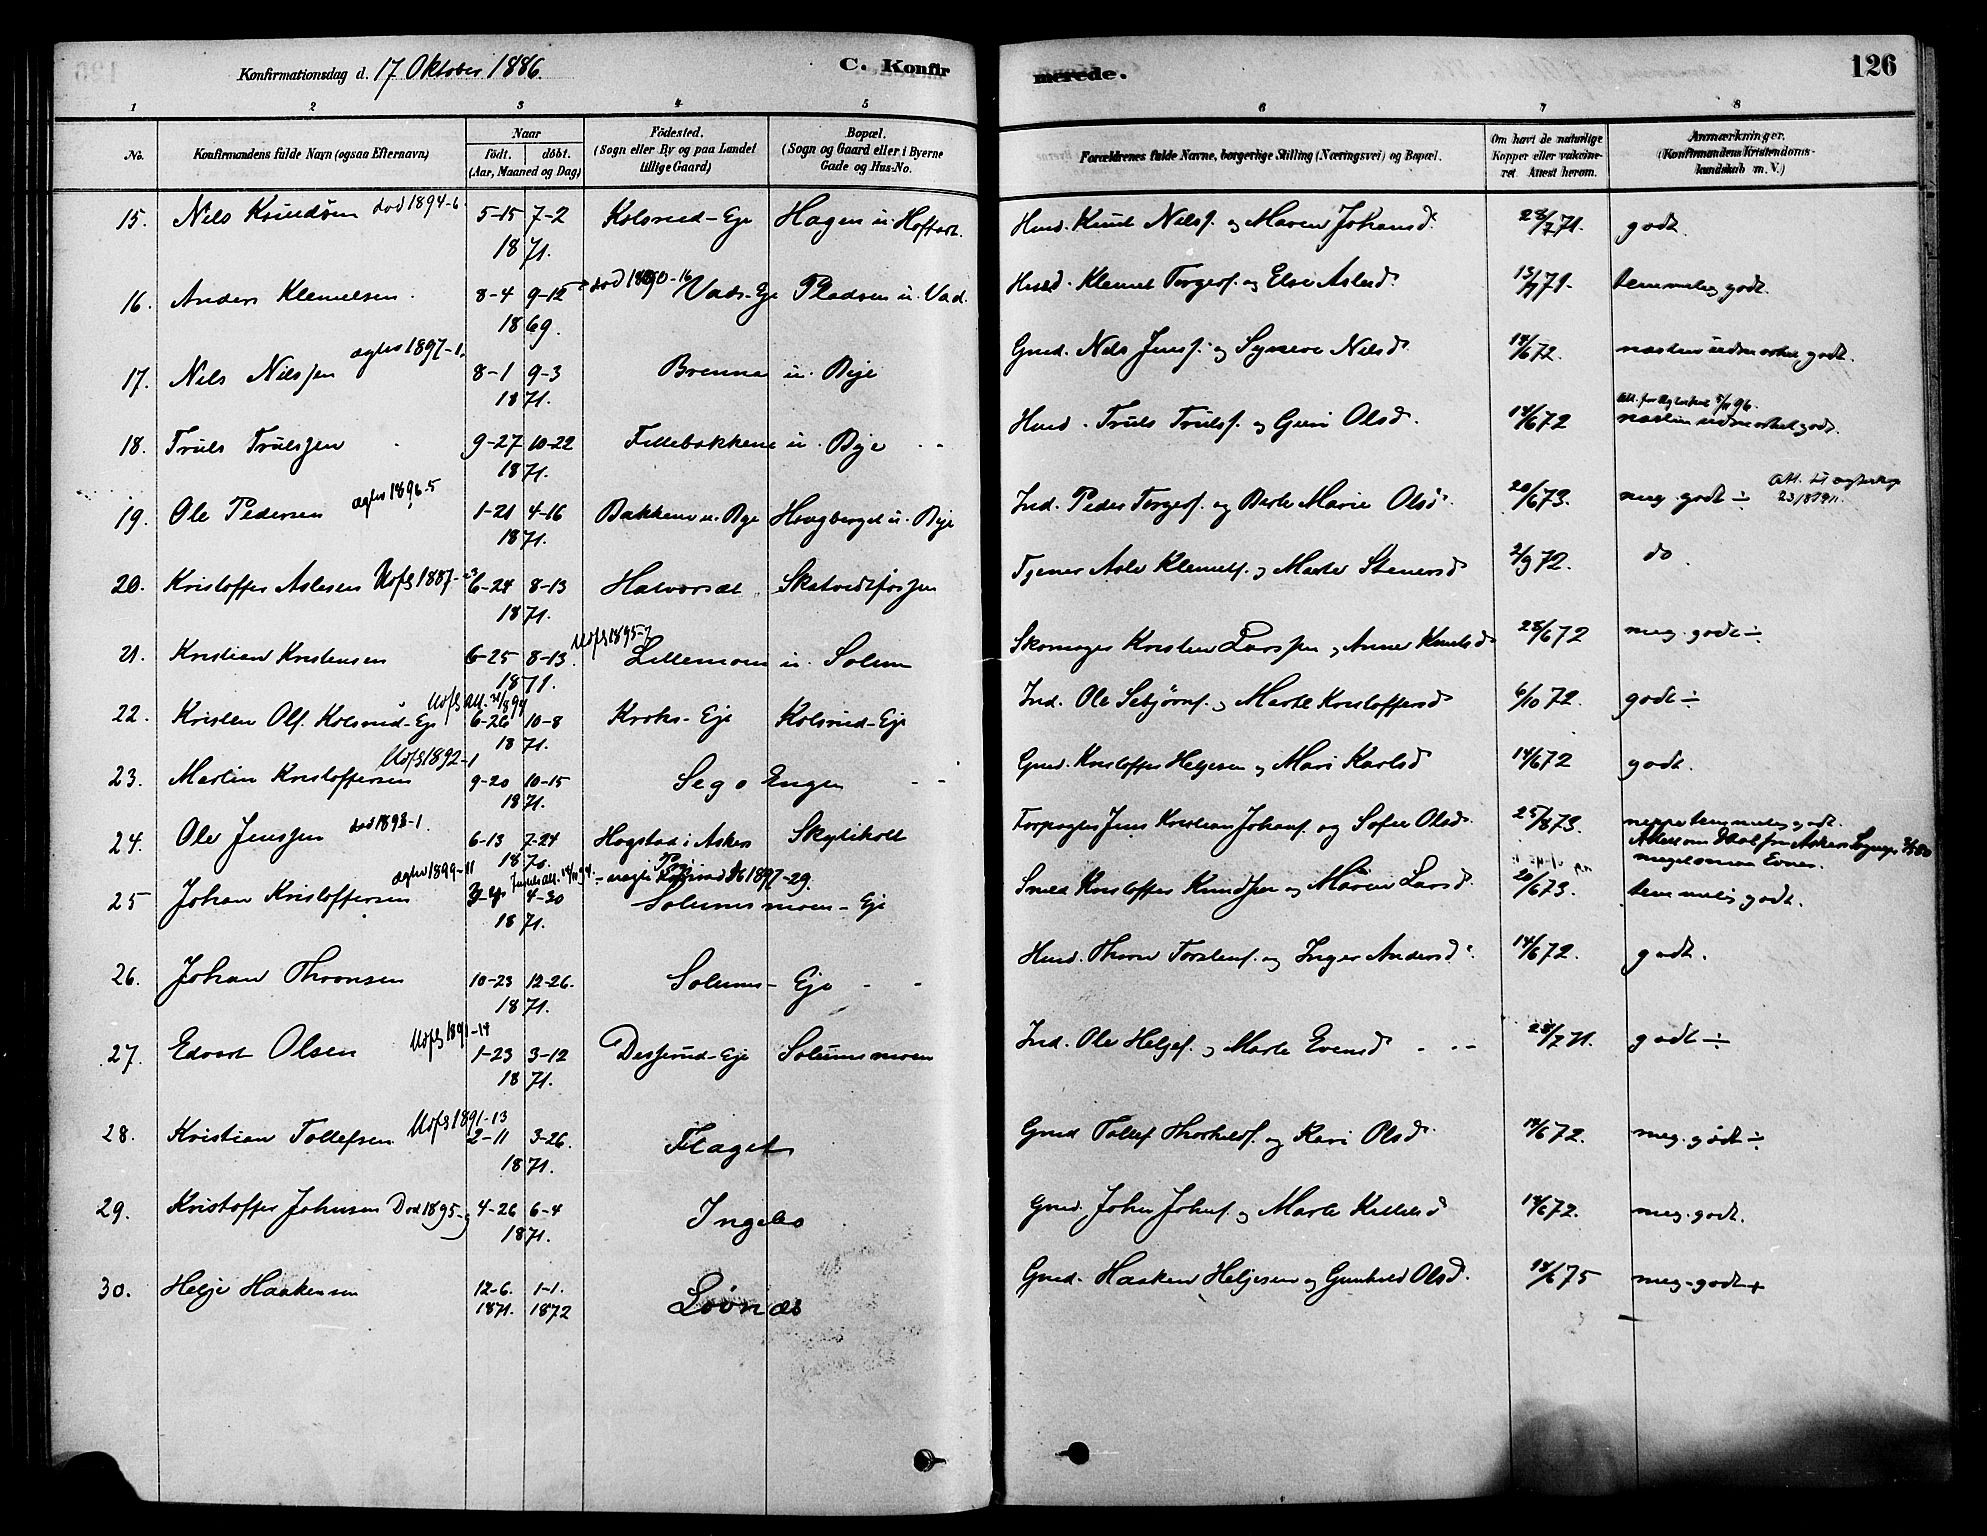 Konfirmationsdag d. 17 Oktober 1886.
C. Konfirmerede.
126
1 2 3 4 5 6 7 8
No.
Konfirmandens fulde Navn (ogsaa Efternavn)
Naar
født. døbt.
(Aar, Maaned og Dag)
Fødested.
(Sogn eller By og paa Landet
tillige Gaard)
Bopæl.
(Sogn og Gaard eller i Byerne
Gade og Hus-No.
Forældrenes fulde Navne, borgerlige Stilling (Næringsvei) og Bopæl.
Om havt de naturlige
Kopper eller vakcine-
ret Attest herom.
Anmærkninger.
(Konfirmandens Kristendoms-
kundskab m. V.)
15. Nils Knudsøn død 1894-6 5-15 7-2 Kolsrud-Eje Hagen u. Hoftvet. Husd. Knut Nilsf. og Maren Johansd. 28/7 71. godt.
1871.
16. Anders Klemetsen. 8-4 9-12 død 1890-16 Vads-Eje Pladsen u. Vad. Husd. Klemet Torgersf. og Else Aslesd. 13/7 71. temmelig godt.
1869.
17. Nils Nilssen ægtev 1897-1. 8-1 9-3 Brenna u. Bye Gmd. Nils Jensf. og Synneve Nilsd. 14/6 72. næsten udmærket godt.
1871.
18. Truls Trulssen 9-27 10-22 Fillebakkene u. Bye Husd. Truls Trulsf. og Guri Olsd. 14/6 72 næsten udmærket godt.
1871.
19. Ole Pedersen ægtev 1896-5 1-21 4-16 Bakkene u. Bye Haugberget u. Bye Ind. Peder Torgersf. og Berte Marie Olsd. 20/6 73. meg. godt ÷
1871.
20. Kristoffer Aslesen Udfl 1887-3 6-24 8-13 Halvorsæt Skatvedtfossen Tjener Asle Klemetsf. og Marte Stenersd 2/9 72. do
1871.
21. Kristian Kristensen 6-25 8-13. Udfl 1895-7 Lillemoen u. Solum Skomager Kristen Larssen og Anne Knutsd 28/6 72 meg. godt ÷
1871.
22. Kristen Ols. Kolsrud-Eje 6-26 10-8 Kroks-Eje Kolsrud-Eje Ind. Ole Sebjørnf. og Marte Kristoffersd 6/10 72. godt ÷
1871.
23. Martin Kristoffersen Udfl 1892-1 9-20 10-15 Sego Engen Gmd. Kristoffer Heljesen og Mari Karlsd 14/6 72 godt.
1871.
24. Ole Jenssen død 1893-1. 6-13 7-24 Hogstad i Asker Skytiholt Forpagter Jens Kristian Johansf. og Sofie Olsd. 25/8 73. neppe temmelig godt.
1870.
25 Johan Kristoffersen ægtev 1899-11 4-30 Solumsmoen-Eje Smed Kristoffer Knudssen og Maren Larsd. 20/6 73. temmelig godt.
1871.
26. Johan Thronsen 10-23 12-26. Solums-Eje Husd. Thron Torstenf. og Inger Andersd. 14/6 72. godt.
1871.
27. Edvart Olsen Udfl 1891-14 1-23 3-12 Desserud-Eje Solumsmoen Ind. Ole Heljef. og Marte Evensd 28/7 71. godt ÷
1871.
28. Kristian Tollefsen Udfl 1891-13 2-11 3-26. Flaget Gmd Tollef Thorkildsf. og Kari Olsd. 14/6 72. meg. godt ÷
1871.
29. Kristoffer Johnsen Død 1895-9 4-26 6-4 Ingelso Gmd. John Johnsf. og Marte Killilsd 14/6 72. meg. godt.
1871.
30. Helje Haakensen 12-6. 1-1. Løvnæs Gmd. Haaken Heljesen og Gunhild Olsd. 14/6 75 meg. godt +
1871. 1872